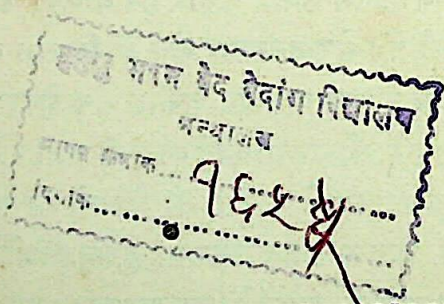 मुमुक्षु भवन वेद वेदांग विद्यालय
ग्रन्थालय
आगत क्रमांक.....१६२५.....
दिनांक.....